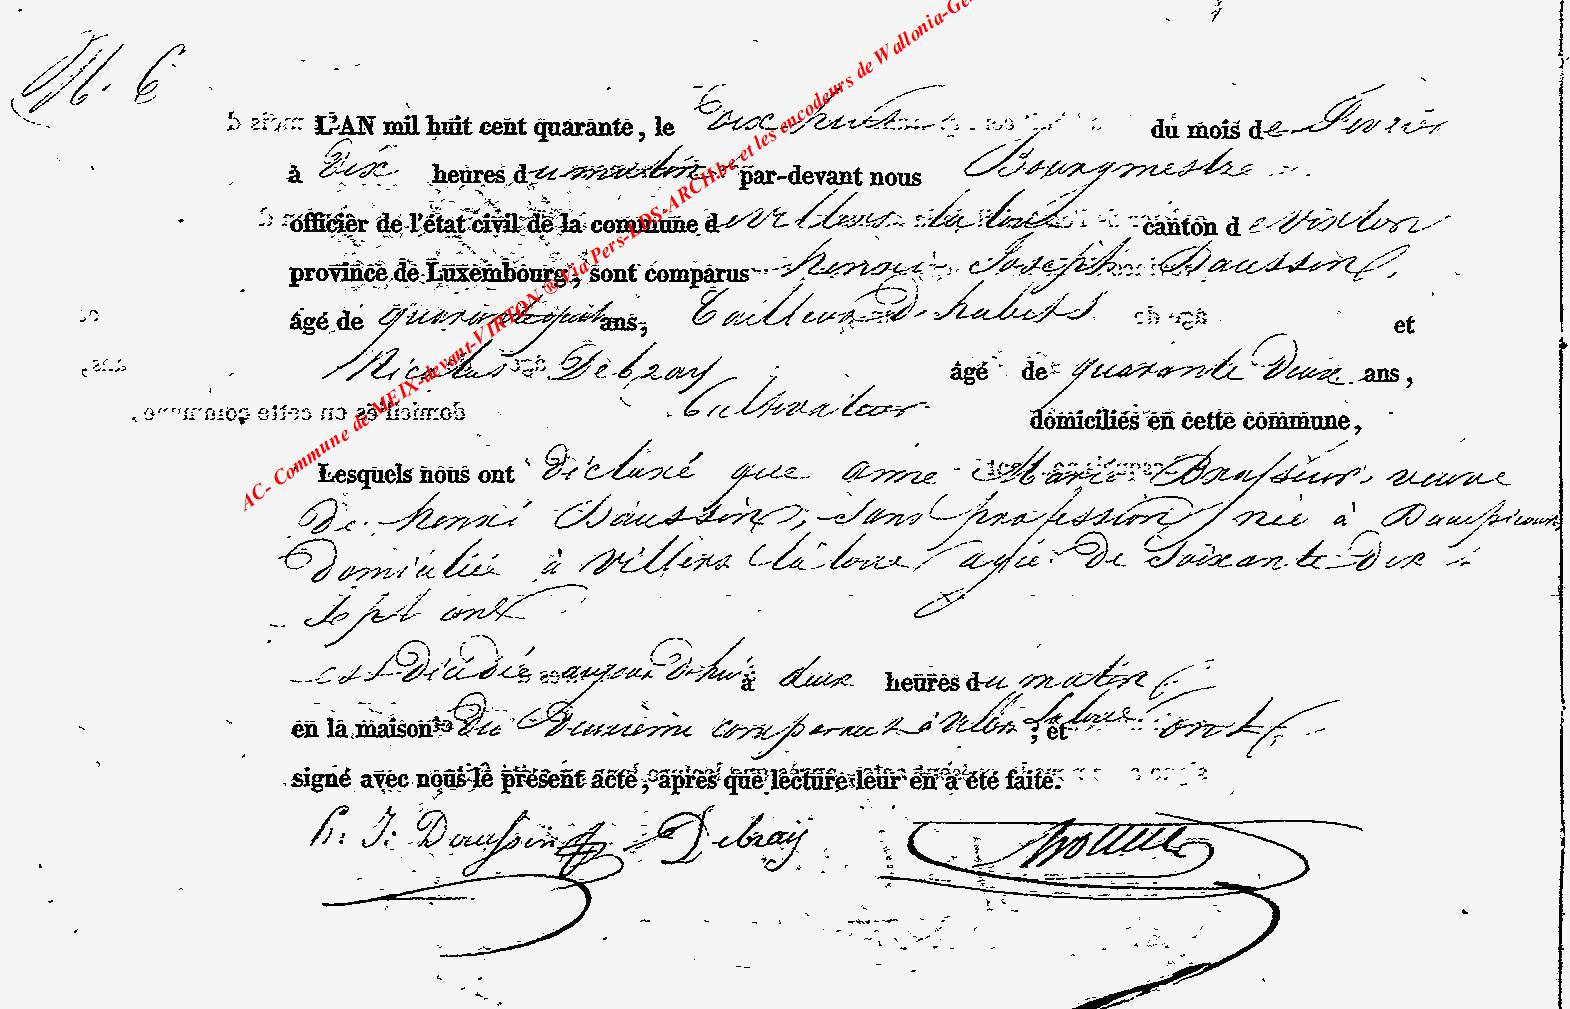 N. 6
L'AN mil huit cent quarante, le dix huit du mois de Fevrier
à Dix heures du matin par-devant nous Bourgmestre
officier de l'état civil de la commune de Villers la loue canton de Virton
province de Luxembourg, sont comparus henri Joseph Daussin
âgé de ans, Tailleur D'habits et
Nicolas Debray âgé de quarante Deux ans,
Cultivateur domiciliés en cette commune,
Lesquels nous ont déclaré que anne Marie Brasseur, veuve
De henri Daussin, sans profession, née à
domiciliée à Villers la loue, agée De Soixante Dix
Sept ans
est Décédée aujourd'hui à deux heures du matin
en la maison du Deuxième comparant à Villers la loue ; et ont
signé avec nous le présent acte, après que lecture leur en a été faite.
h. J. Daussin Debray
AC- Commune de MEIX-devant-VIRTON ® Via Pers-LDS-ARCH.be et les encodeurs de Wallonia-Ge